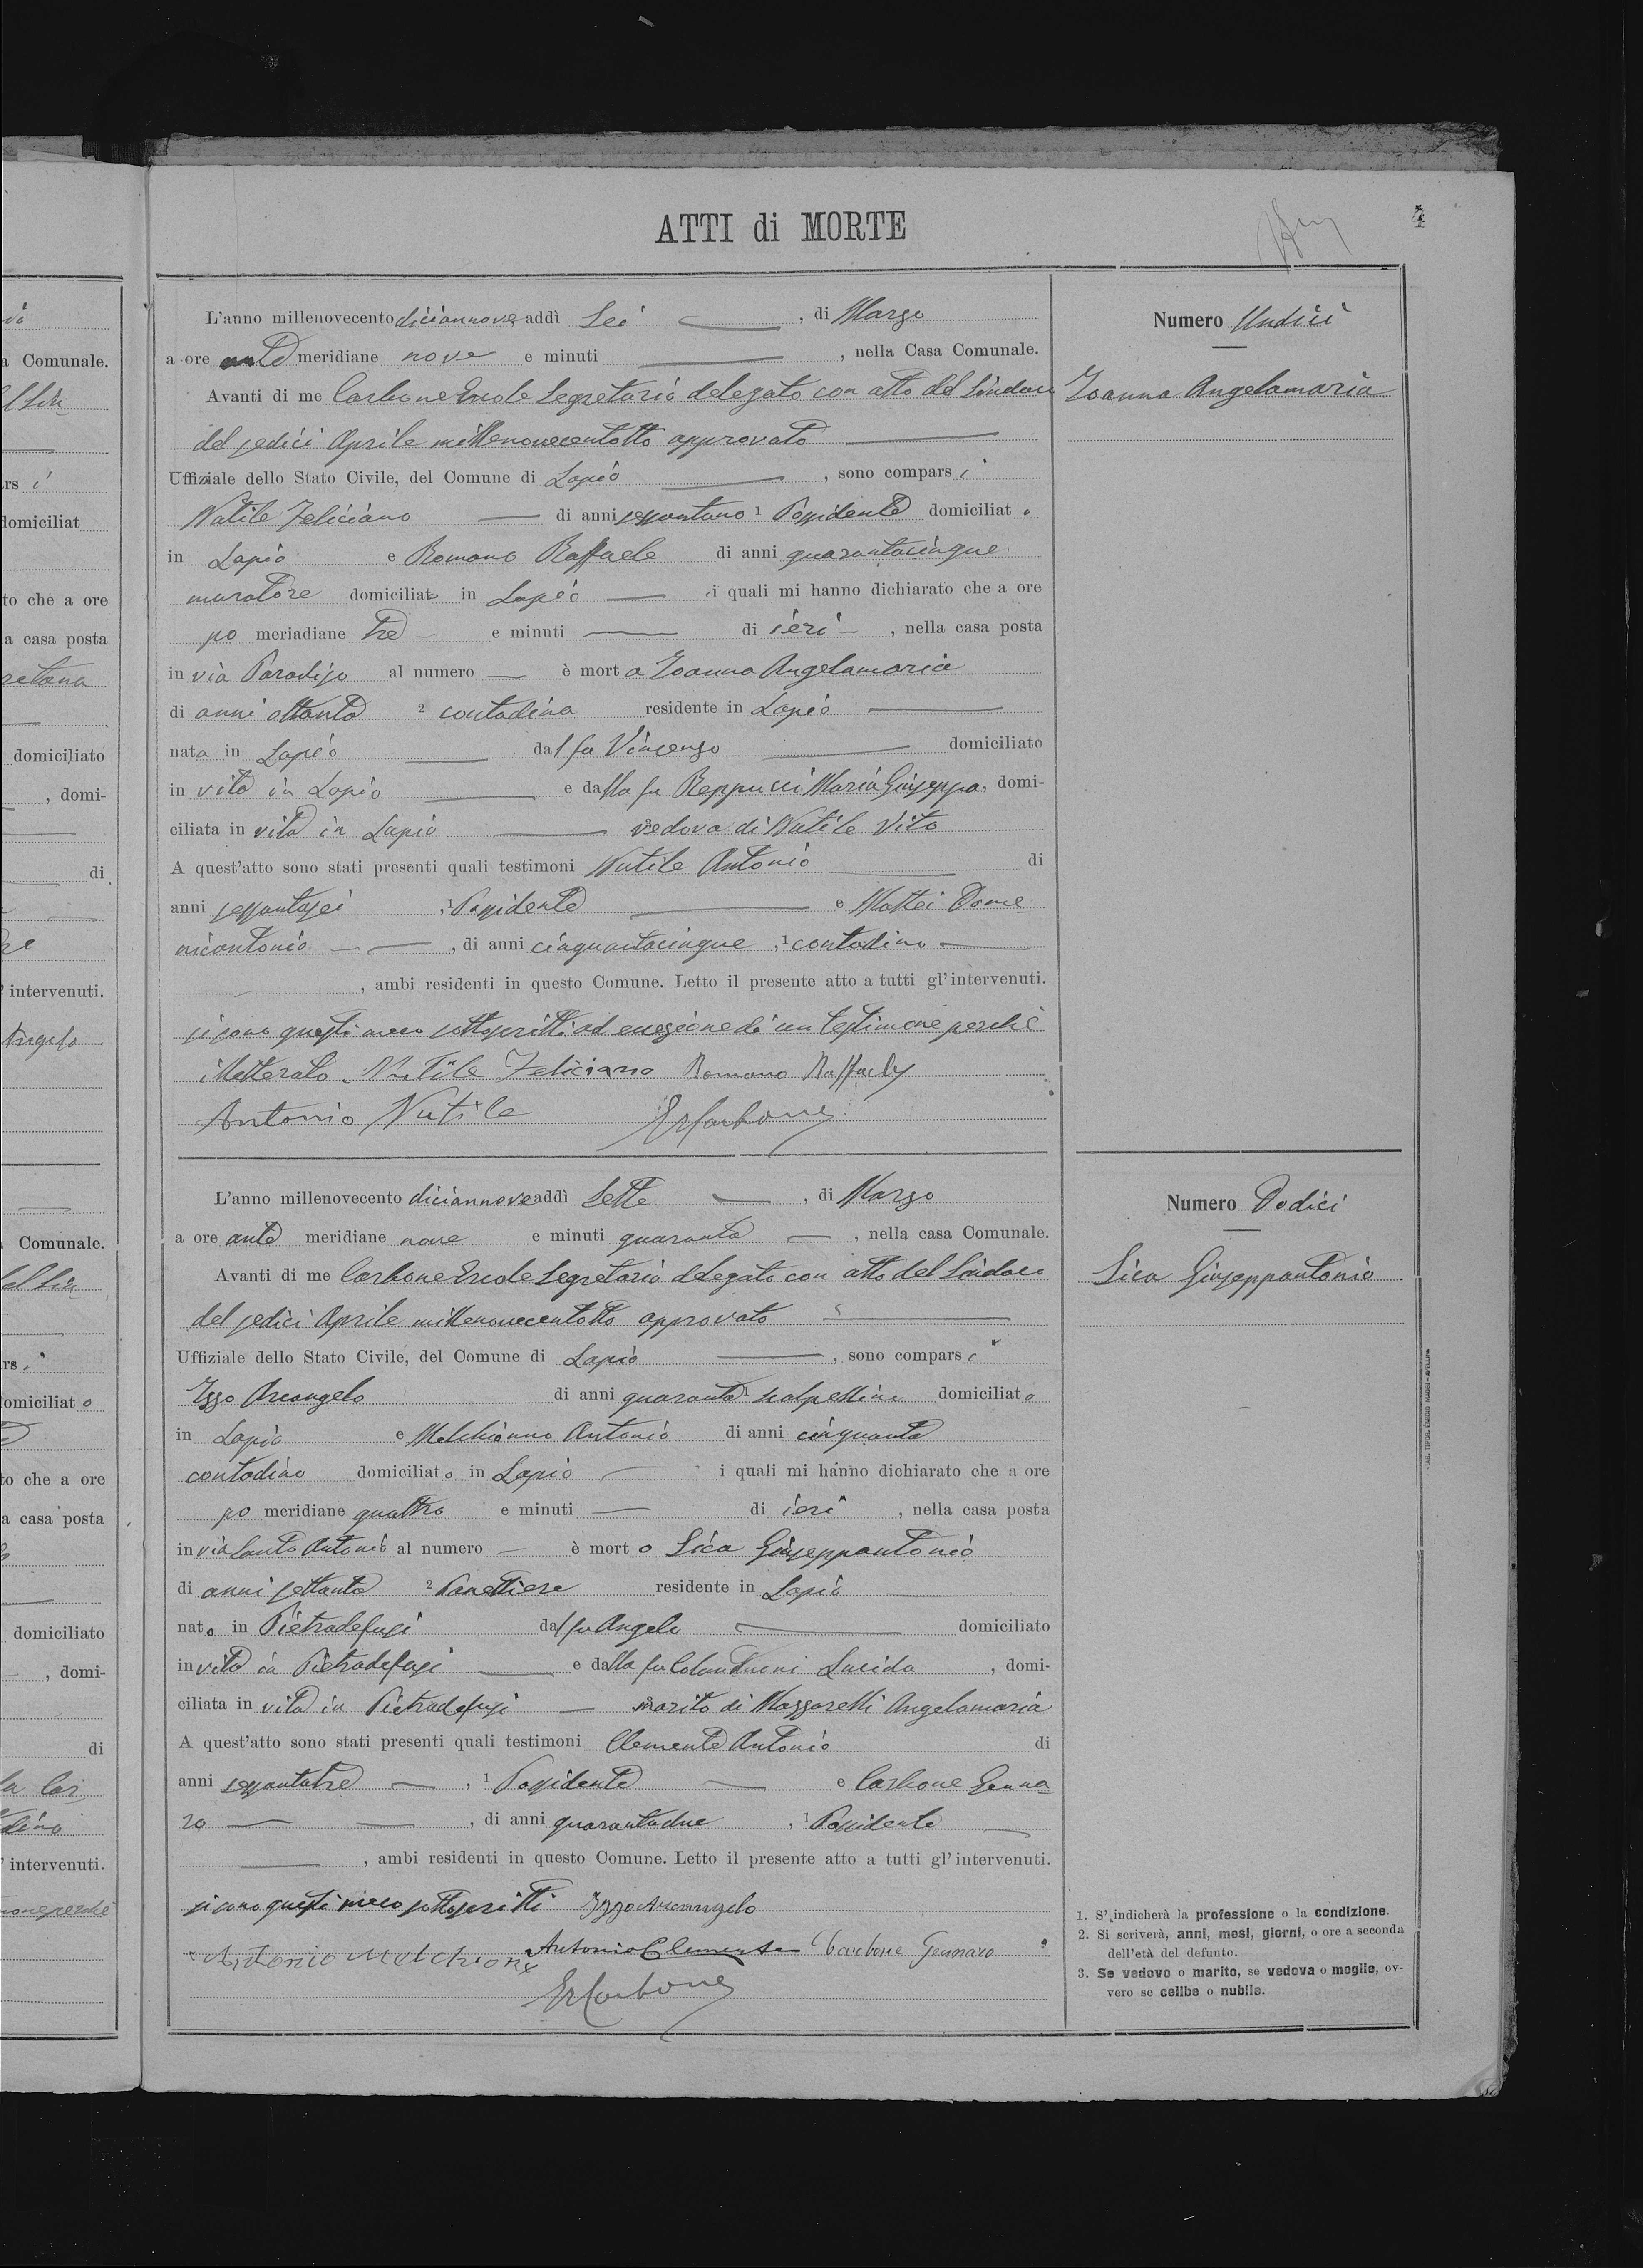 ATTI di MORTE
4
L'anno millenovecento diciannove addì Sei, di Marzo
a ore ante meridiane nove e minuti, nella Casa Comunale.
Avanti di me Carbone Ercole Segretario delegato con atto del Sindaco
del sedici Aprile millenovecentotto approvato
Uffiziale dello Stato Civile, del Comune di Lapio, sono comparsi
Nutile Feliciano di anni sessantuno 1 Possidente domiciliato
in Lapio e Romano Raffaele di anni quarantacinque
muratore domiciliato in Lapio i quali mi hanno dichiarato che a ore
po meriadiane tre e minuti di ieri, nella casa posta
in via Paradiso al numero è morta Zoanna Angelamaria
di anni ottanta 2 contadina residente in Lapio
nata in Lapio dal fu Vincenzo domiciliato
in vita in Lapio e dalla fu Reppucci Maria Giuseppa, domi-
ciliata in vita in Lapio vedova di Nutile Vito
A quest'atto sono stati presenti quali testimoni Nutile Antonio di
anni sessantasei, 1 Possidente e Mattei Dome
nicantonio, di anni cinquantacinque, 1 contadino
, ambi residenti in questo Comune. Letto il presente atto a tutti gl'intervenuti.
si sono questi meco sottoscritti ad eccezione di un testimone perché
illetterato. Nutile Feliciano Romano Raffaele
Antonio Nutile ErCarbone
Numero Undici
Zoanna Angelamaria
L'anno millenovecento diciannove addì Sette, di Marzo
a ore ante meridiane nove e minuti quaranta, nella casa Comunale.
Avanti di me Carbone Ercole Segretario delegato con atto del Sindaco
del sedici Aprile millenovecentotto approvato
Uffiziale dello Stato Civile, del Comune di Lapio, sono comparsi
Izzo Arcangelo di anni quaranta 1 scalpellino domiciliato
in Lapio e Melchionno Antonio di anni cinquanta
contadino domiciliato in Lapio i quali mi hanno dichiarato che a ore
po meridiane quattro e minuti di ieri, nella casa posta
in via Santo Antonio al numero è morto Sica Giuseppantonio
di anni settanta 2 Panettiere residente in Lapio
nato in Pietradefusi dal fu Angelo domiciliato
in vita in Pietradefusi e dalla fu Colantuoni Lucida, domi-
ciliata in vita in Pietradefusi marito di Mazzarelli Angelamaria
A quest'atto sono stati presenti quali testimoni Clemente Antonio di
anni sessantatre, 1 Possidente e Carbone Genna
ro, di anni quarantadue, 1 Possidente
, ambi residenti in questo Comune. Letto il presente atto a tutti gl'intervenuti.
si sono questi meco sottoscritti Izzo Arcangelo
Antonio Melchionno Antonio Clemente Carbone Gennaro
ErCarbone
Numero Dodici
Sica Giuseppantonio
1. S'indicherà la professione o la condizione.
2. Si scriverà, anni, mesi, giorni, o ore a seconda
dell'età del defunto.
3. Se vedovo o marito, se vedova o moglie, ov-
vero se celibe o nubile.